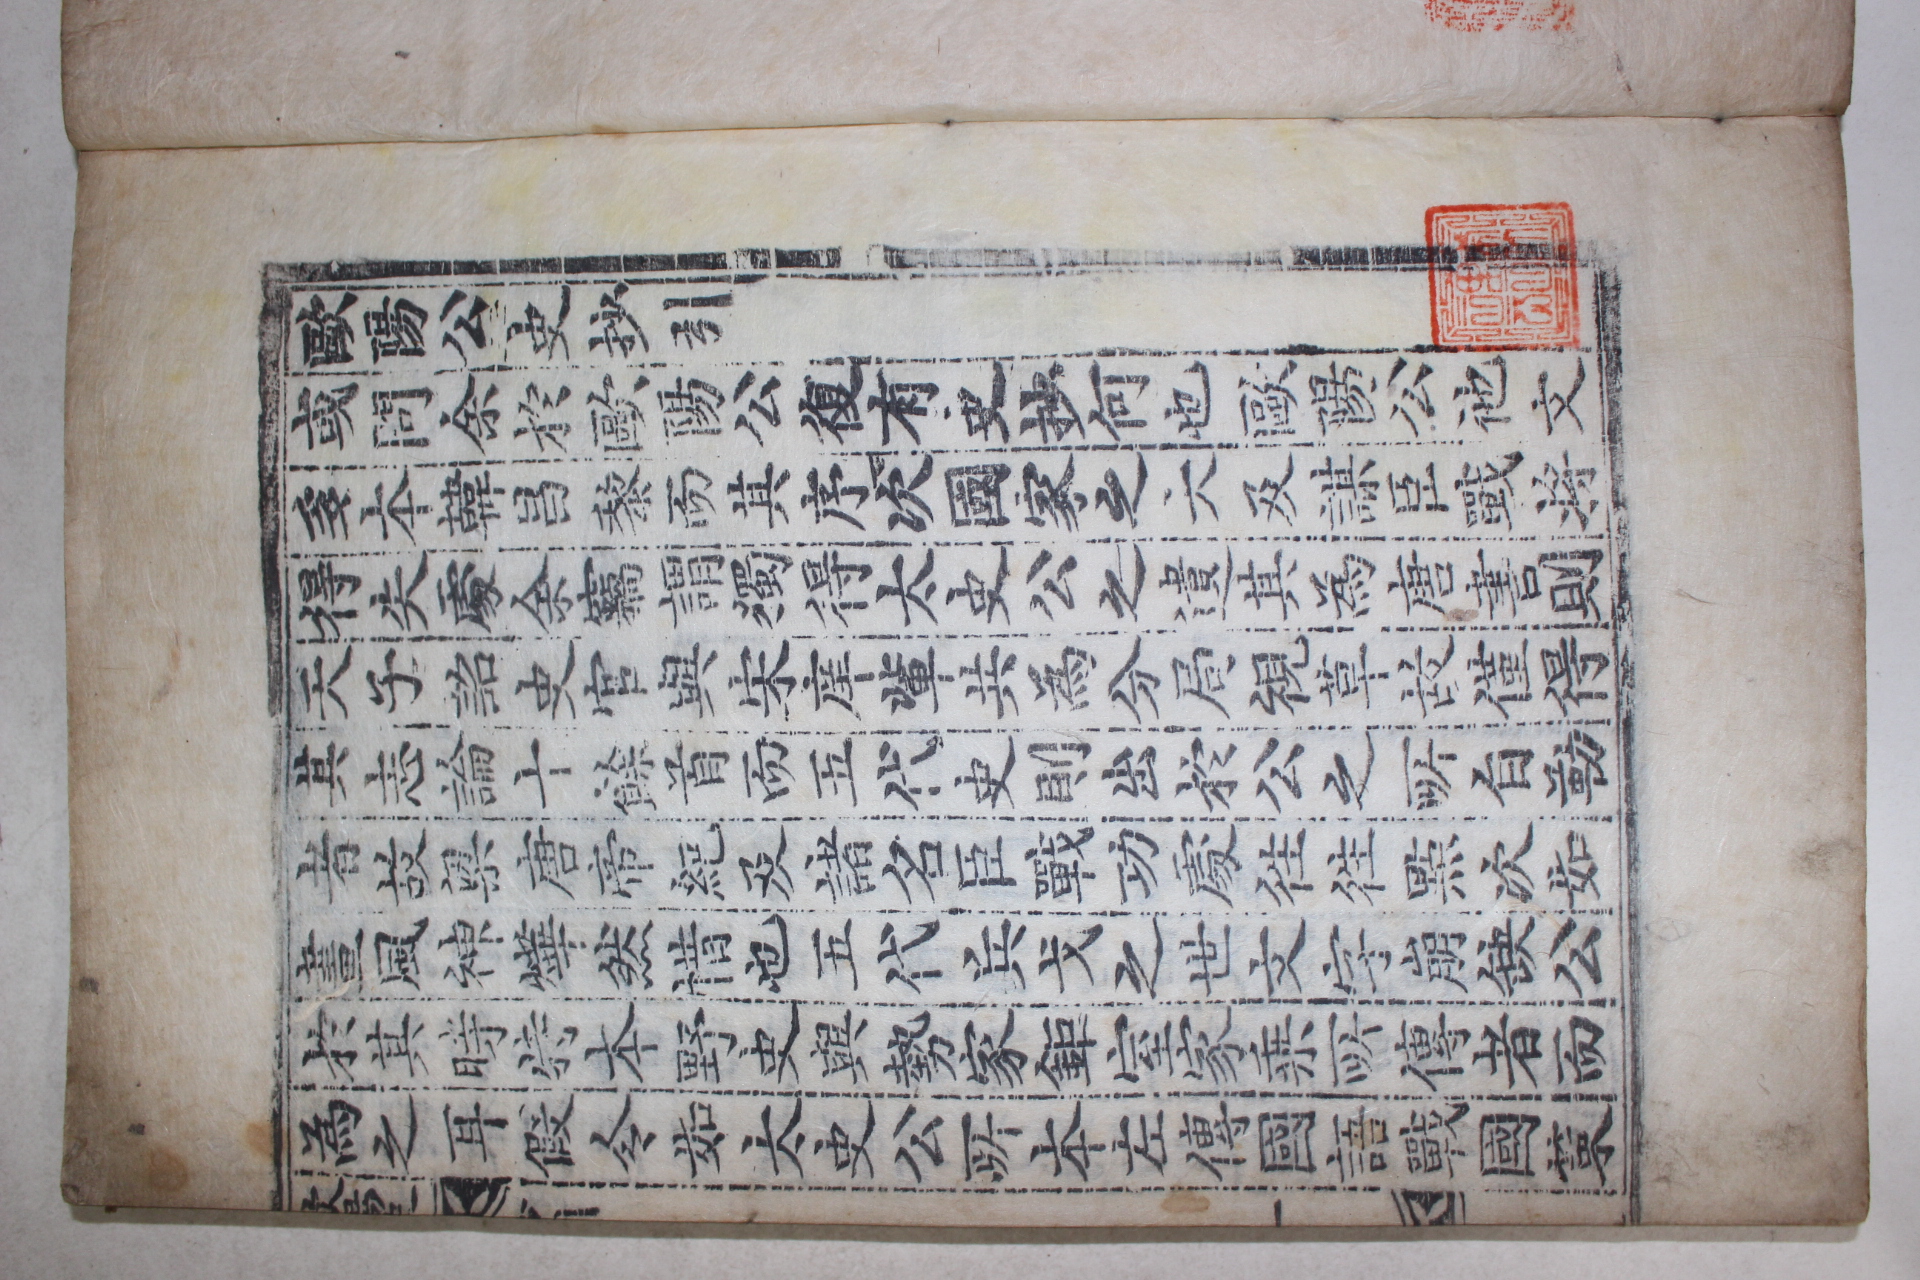 歐陽公史抄引
或問余於歐陽公復有史抄何也歐陽公他文
多本韓昌黎而其序次國家之大及謀臣戰將
得失處余竊謂獨得太史公之遺其為唐書則
天子詔史官與宋庠輩共為分局視草故僅得
其志論十餘首而五代史則出於公之所自勒
者故梁唐帝紀及諸名臣戰功處往往點次如
畫風神燁然惜也五代兵戈之世文字崩缺公
於其時特本野史與勢家鉅室家乘所傳者而
為之耳假令如太史公所本左傳國語戰國策